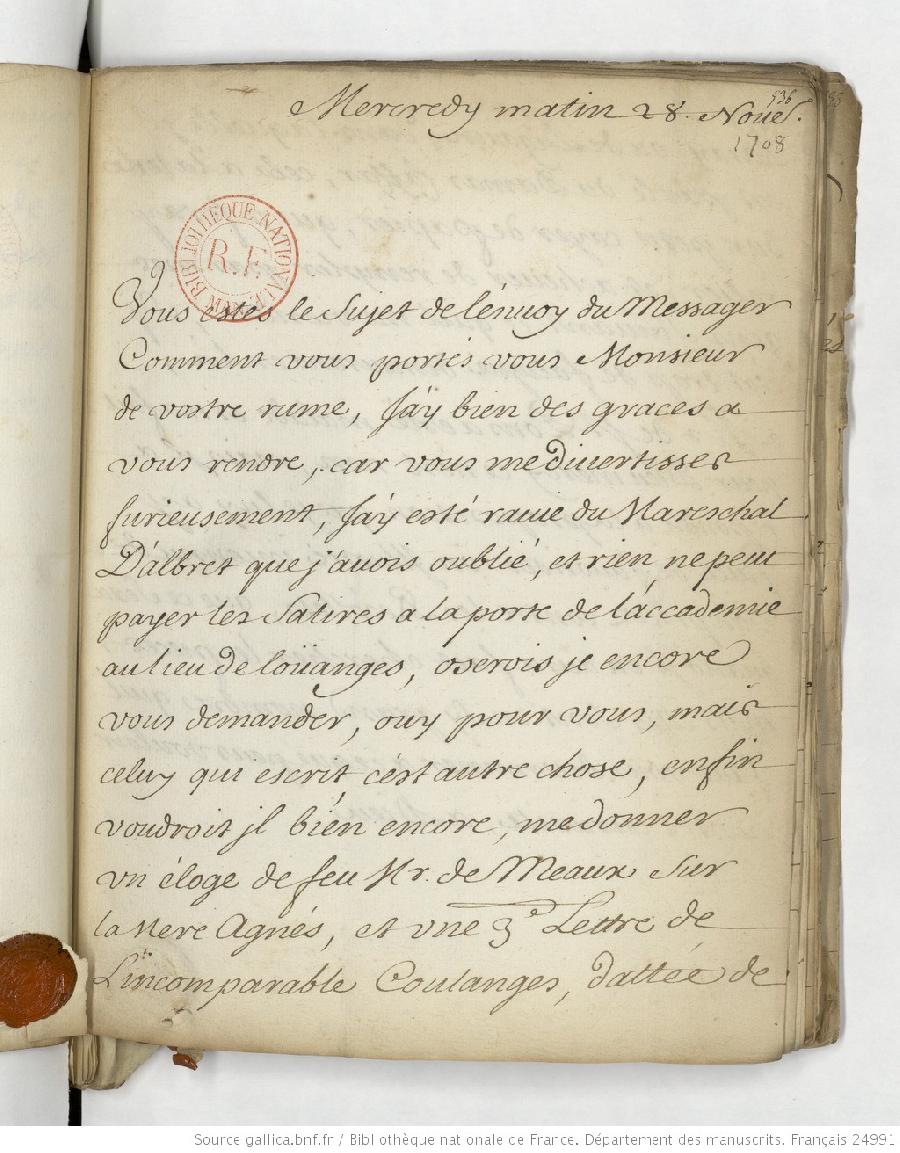 536
Mercredy matin 28. Nouel.
1708
BIBLIOTHEQUE NATIONALE MAN
R.F.
Vous estes le Sujet de l'énuoy du Messager
Comment vous portés vous Monsieur
de vostre rume, J'ay bien des graces a
vous rendre, car vous me diuertisses
furieusement, J'ay esté du Mareschal
D'albret que j'auois oublié, et rien ne peut
payer les Satires a la porte de l'accademie
au lieu de loüanges, oserois je encore
vous demander, ouy pour vous, mais
celuy qui escrit, c'est autre chose, enfin
voudroit jl bien encore, me donner
vn éloge de feu Mr. de Meaux Sur
la Mere Agnés, et vne 3e Lettre de
L'incomparable Coulanges, dattée de
Source gallica.bnf.fr / Bibliothèque nationale de France. Département des manuscrits. Français 24991